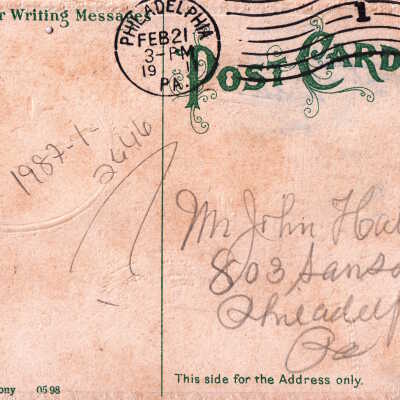 r Writing Messages
PHILADELPHIA
FEB 21
3-PM
19
PA.
1
POST CARD
1987-1-
2646
Mr John Hal
803 Sanso
Philadelp
Pa
ony 05 98
This side for the Address only.